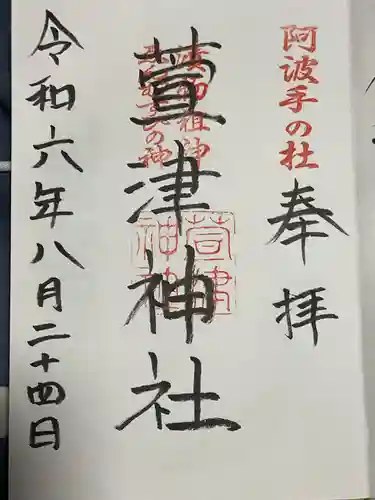 阿波手の杜
奉拝
漬物祖神
萱津神社
萱津神社
令和六年八月二十四日